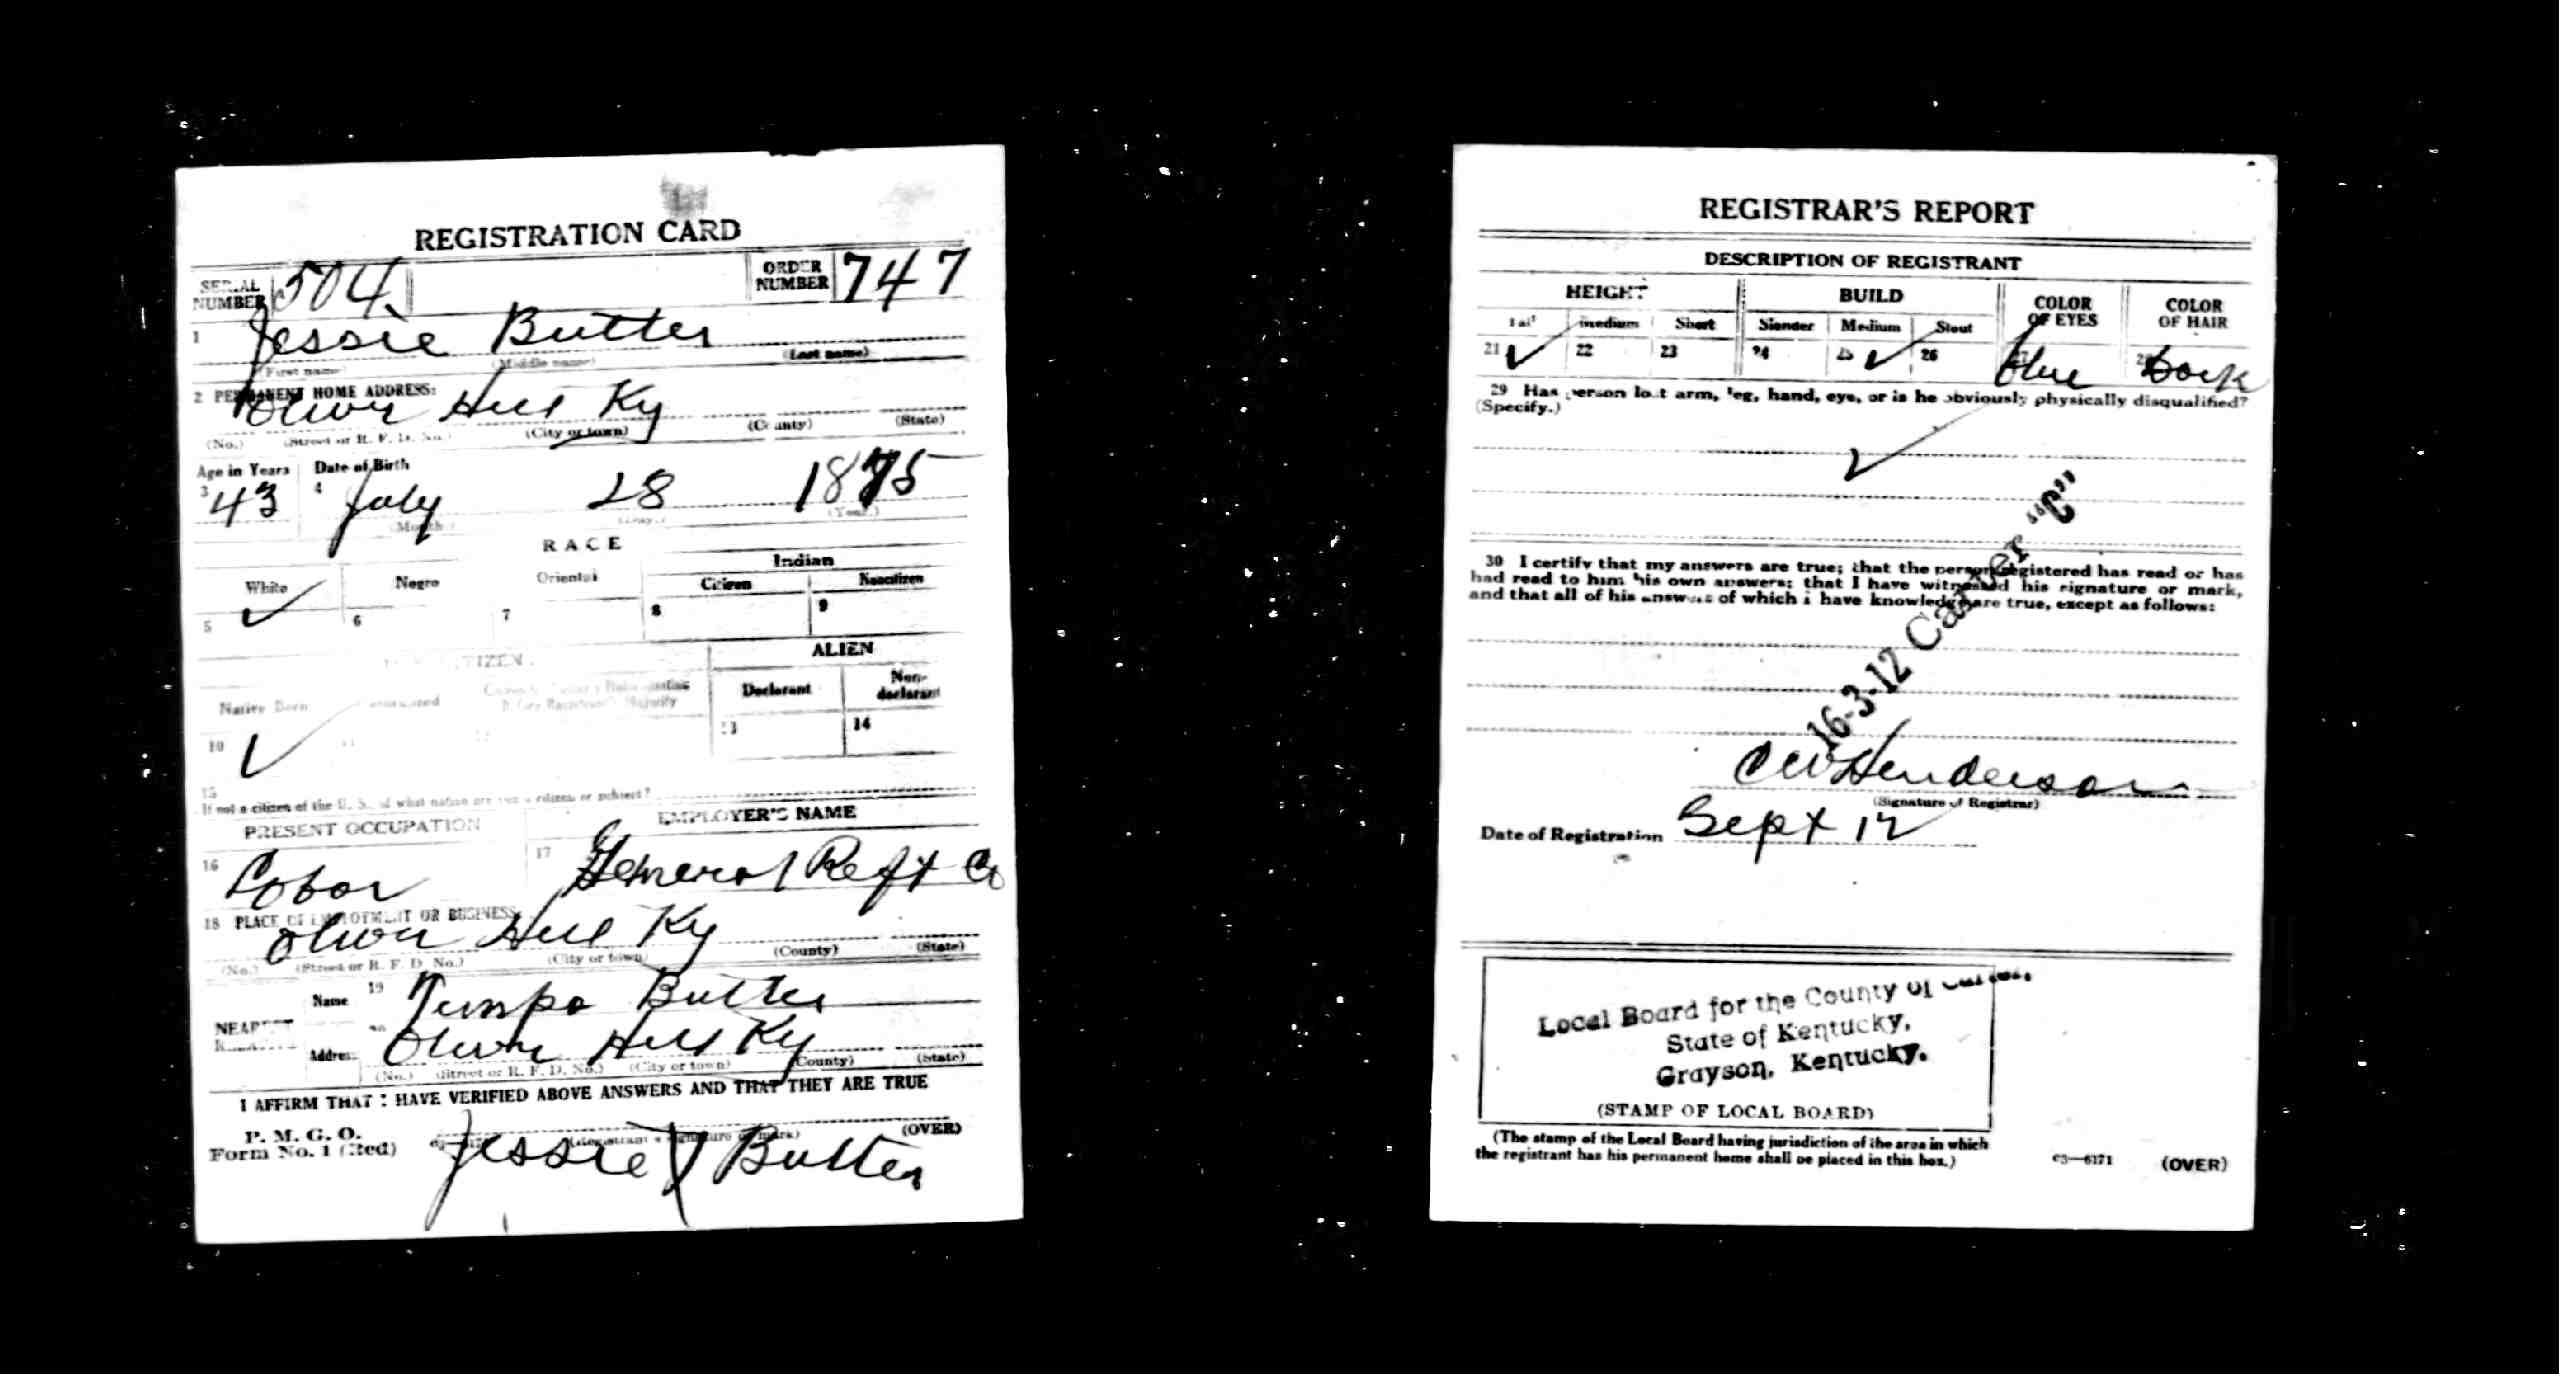 REGISTRATION CARD
SERIAL NUMBER 504 ORDER NUMBER 747
1 Jessie Butler
(First name) (Middle name) (Last name)
2 PERMANENT HOME ADDRESS:
Olive Hill Ky
(No.) (Street or R. F. D. No.) (City or town) (County) (State)
Age in Years Date of Birth
3 43 4 July 28 1875
(Month) (Day.) (Year.)
RACE
White Negro Oriental Indian
Citizen Noncitizen
5 ✓ 6 7 8 9
CITIZEN ALIEN
Native Born Declarant Non-declarant
10 ✓ 11 12 13 14
15
If not a citizen of the U. S., of what nation are you a citizen or subject?
PRESENT OCCUPATION EMPLOYER'S NAME
16 Labor 17 General Reft Co
18 PLACE OF EMPLOYMENT OR BUSINESS
Olive Hill Ky
(No.) (Street or R. F. D. No.) (City or town) (County) (State)
NEAREST Name 19 Butler
Address 20 Olive Hill Ky
(No.) (Street or R. F. D. No.) (City or town) (County) (State)
I AFFIRM THAT I HAVE VERIFIED ABOVE ANSWERS AND THAT THEY ARE TRUE
P. M. G. O.
Form No. 1 (Red) (Registrant's signature or mark) (OVER)
Jessie X Butler
REGISTRAR'S REPORT
DESCRIPTION OF REGISTRANT
HEIGHT BUILD COLOR OF EYES COLOR OF HAIR
Tall Medium Short Slender Medium Stout
21 ✓ 22 23 24 25 ✓ 26 27 blue 28 Dark
29 Has person lost arm, leg, hand, eye, or is he obviously physically disqualified?
(Specify.)
✓
30 I certify that my answers are true; that the person registered has read or has
had read to him his own answers; that I have witnessed his signature or mark,
and that all of his answers of which I have knowledge are true, except as follows:
16-3-12 Carter "C"
C W Henderson
(Signature of Registrar)
Date of Registration Sept 12
Local Board for the County of Carter,
State of Kentucky,
Grayson, Kentucky.
(STAMP OF LOCAL BOARD)
(The stamp of the Local Board having jurisdiction of the area in which
the registrant has his permanent home shall be placed in this box.)
03—6171 (OVER)